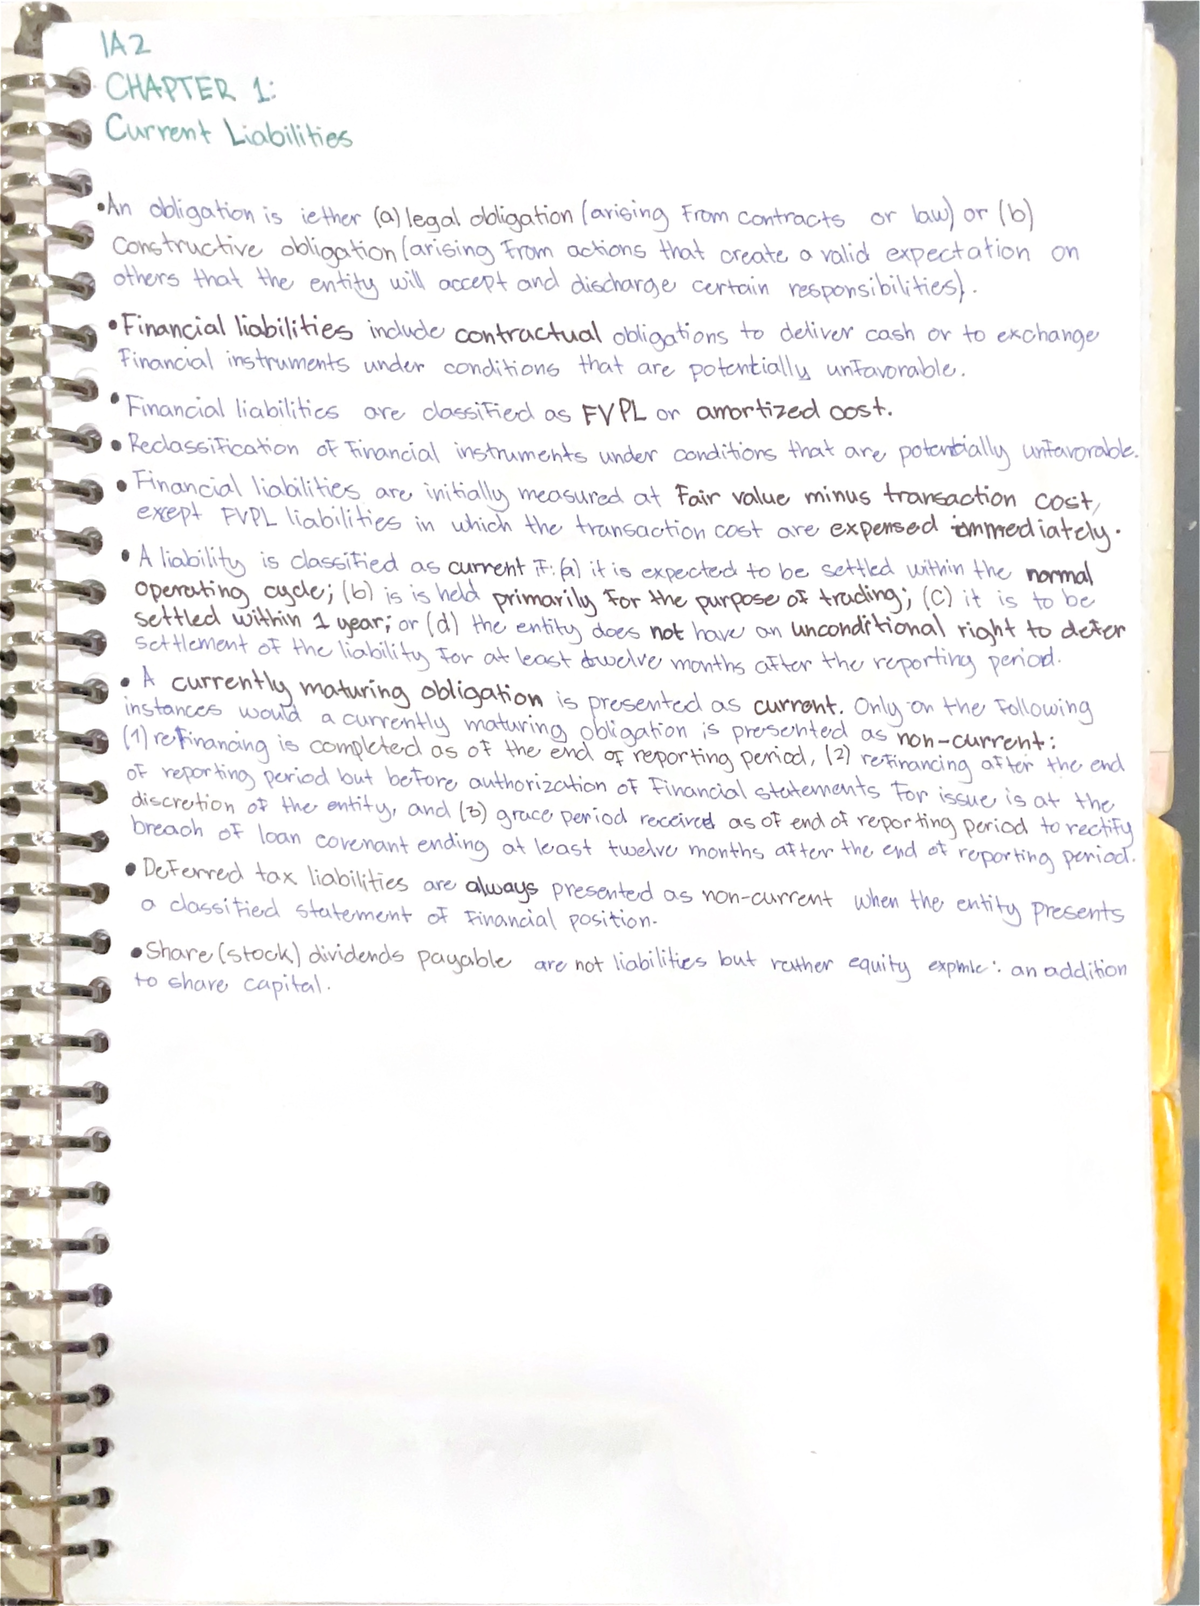 IA2
CHAPTER 1:
Current Liabilities
•An obligation is iether (a) legal obligation (arising from contracts or law) or (b)
constructive obligation (arising from actions that create a valid expectation on
others that the entity will accept and discharge certain responsibilities).
•Financial liabilities include contractual obligations to deliver cash or to exchange
financial instruments under conditions that are potentially unfavorable.
•Financial liabilities are classified as FVPL or amortized cost.
•Reclassification of financial instruments under conditions that are potentially unfavorable.
•Financial liabilities are initially measured at fair value minus transaction cost,
exept FVPL liabilities in which the transaction cost are expensed immediately.
•A liability is classified as current if: (a) it is expected to be settled within the normal
operating cycle; (b) is is held primarily for the purpose of trading; (c) it is to be
settled within 1 year; or (d) the entity does not have an unconditional right to defer
settlement of the liability for at least twelve months after the reporting period.
•A currently maturing obligation is presented as current. Only on the following
instances would a currently maturing obligation is presented as non-current:
(1) refinancing is completed as of the end of reporting period, (2) refinancing after the end
of reporting period but before authorization of financial statements for issue is at the
discretion of the entity, and (3) grace period received as of end of reporting period to rectify
breach of loan covenant ending at least twelve months after the end of reporting period.
•Deferred tax liabilities are always presented as non-current when the entity presents
a classified statement of financial position.
•Share (stock) dividends payable are not liabilities but rather equity : an addition
to share capital.